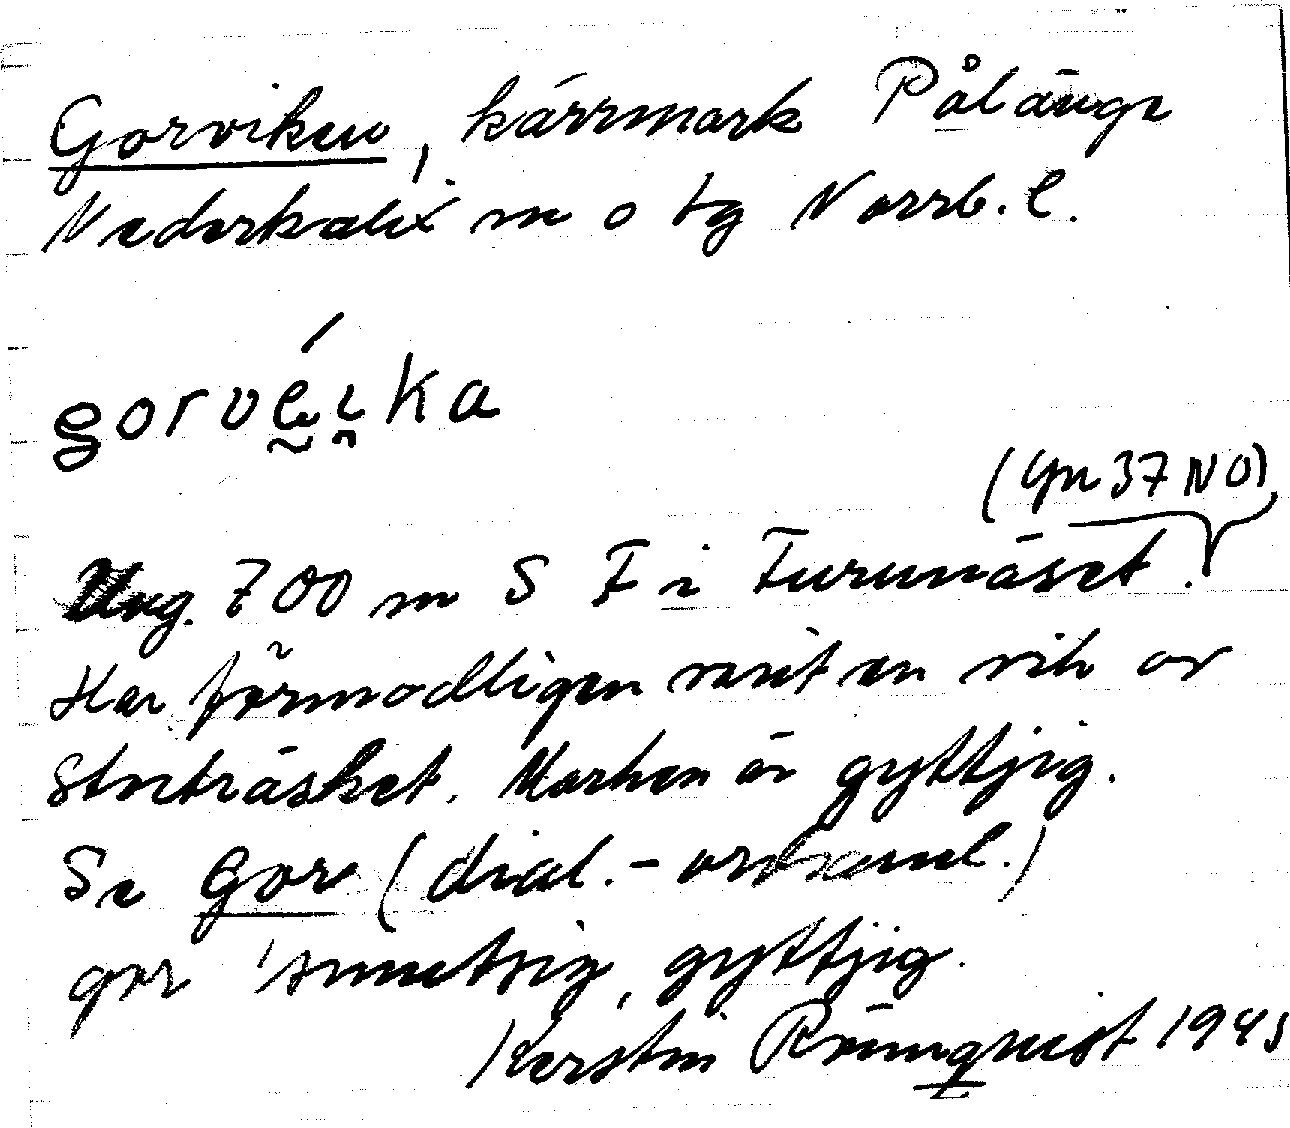 Gorviken, kärrmark Pålänge
Nederkalix sn o tg Norrb. l.
gorvéıka
(Gn 37 NO)
Ung. 700 m S F i Furunäset.
Har förmodligen varit en vik av
Storträsket. Marken är gyttjig.
Se Gorr (dial.-ordsaml.)
gorr 'smutsig, gyttjig.
Kerstin Rönnqvist 1945